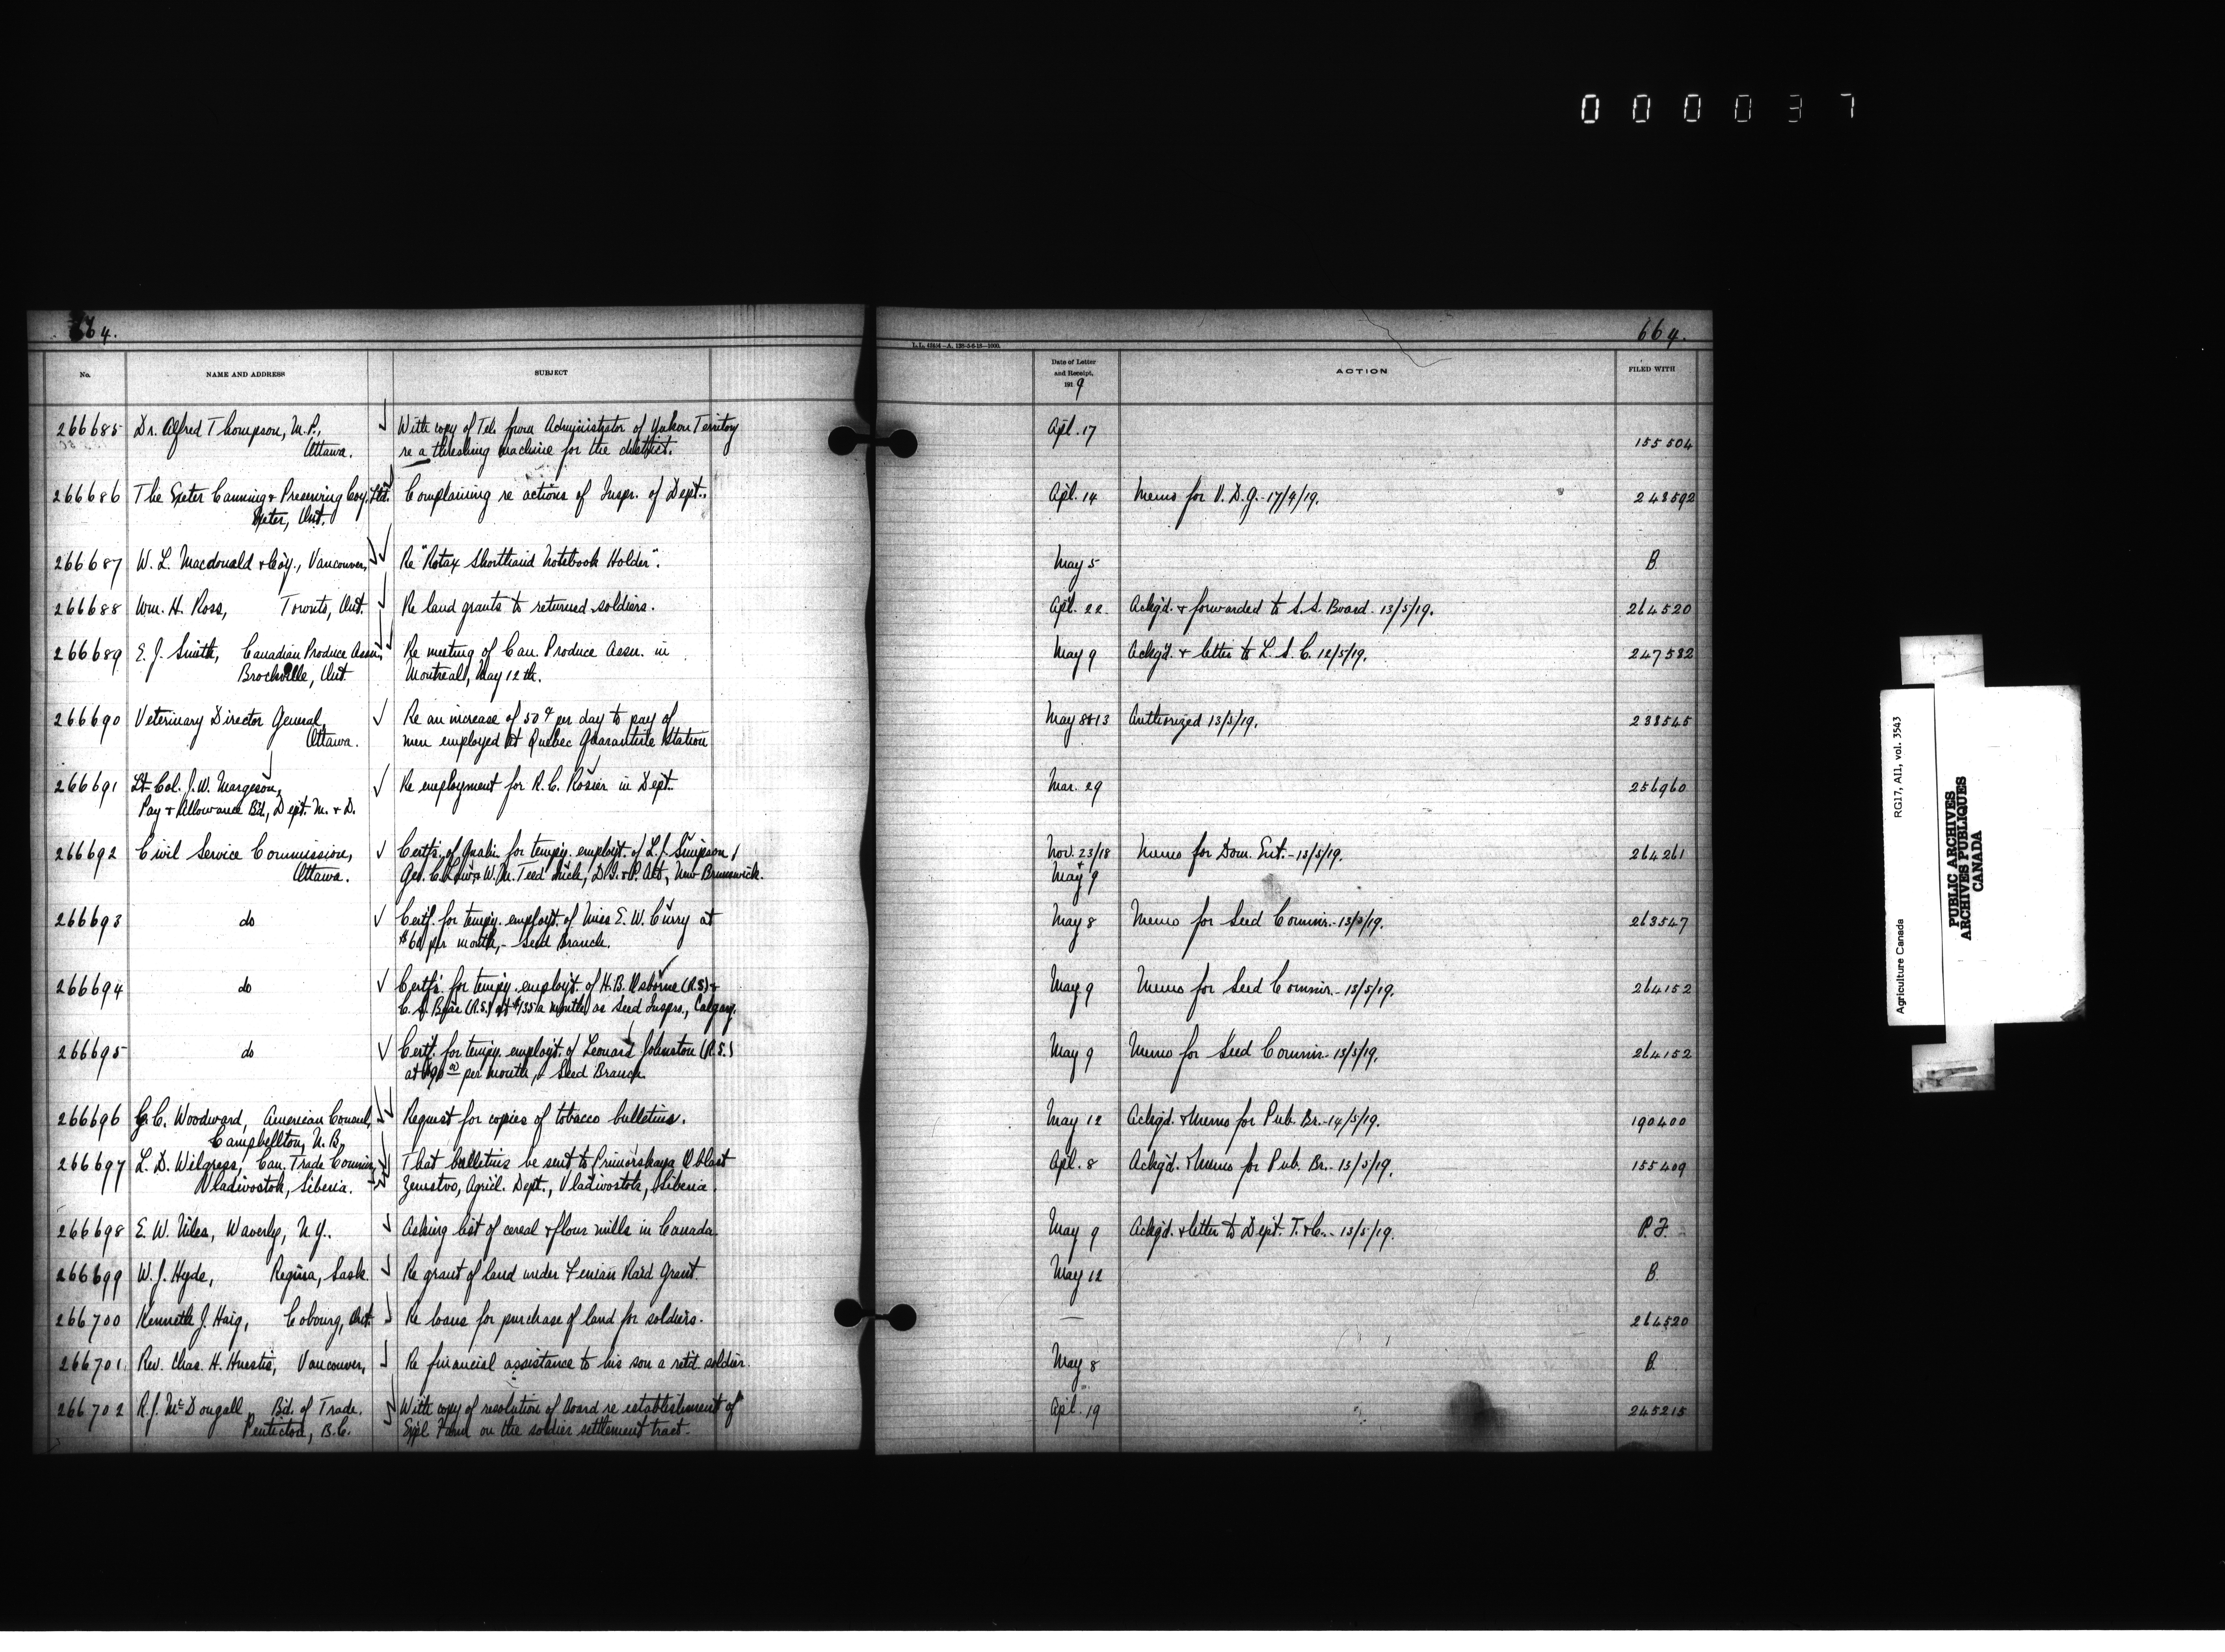 000037
664.
No. NAME AND ADDRESS SUBJECT
266685 Dr. Alfred Thompson, M.P., With copy of Tel. from Administrator of Yukon Territory
Ottawa. re a threshing machine for the district.
266686 The Exeter Canning & Preserving Coy. Ltd. Complaining re actions of Inspr. of Dept.
Exeter, Ont.
266687 W. L. Macdonald & Coy., Vancouver, Re "Rotax Shorthand Notebook Holder".
266688 Wm. H. Ross, Toronto, Ont. Re land grants to returned soldiers.
266689 E. J. Smith, Canadian Produce Assn., Re meeting of Can. Produce Assn. in
Brockville, Ont. Montreal, May 12th.
266690 Veterinary Director General, Re an increase of 50¢ per day to pay of
Ottawa. men employed at Quebec Quarantine Station
266691 Lt-Col. J. W. Margeson, Re employment for R. C. Rosier in Dept.
Pay & Allowance Bd., Dept. M. & D.
266692 Civil Service Commission, Certfs. of Qualn. for tempy. employt. of L. J. Simpson,
Ottawa. Geo. C. & W. M. Teed D. I. & P. New Brunswick.
266693 do Certf. for tempy. employt. of Miss E. W. Curry at
$60 per month, - Seed Branch.
266694 do Certfs. for tempy. employt. of H. B. Osborne (R.S.) &
C. S. (R.S.) at $135 a month as Seed Insprs., Calgary.
266695 do Certf. for tempy. employt. of Leonard Johnston (R.S.)
at $90 per month, - Seed Branch
266696 G. C. Woodward, American Consul, Request for copies of tobacco bulletins.
Campbellton, N. B.
266697 L. D. Wilgress, Can. Trade Commr., That bulletins be sent to Primorskaya Oblast
Vladivostok, Siberia. Zemstvo, Agricl. Dept., Vladivostok, Siberia.
266698 E. W. Niles, Waverly, N. Y. Asking list of cereal & flour mills in Canada.
266699 W. J. Hyde, Regina, Sask. Re grant of land under Fenian Raid Grant.
266700 Kenneth J. Haig, Cobourg, Ont. Re loans for purchase of land for soldiers.
266701 Rev. Chas. H. Huestis, Vancouver, Re financial assistance to his son a retd. soldier.
266702 R. J. McDougall, Bd. of Trade, With copy of resolution of Board re establishment of
Penticton, B. C. Exptl. Farm on the soldier settlement tract.
664.
Date of Letter and Receipt. 1919 ACTION FILED WITH
Apl. 17 155504
Apl. 14 Memo for V. D. G. - 17/4/19. 243592
May 5 B.
Apl. 22 Ackg'd. & forwarded to S. S. Board - 13/5/19. 264520
May 9 Ackg'd. & letter to L. S. C. 12/5/19. 247582
May 8 & 13 Authorized 13/5/19. 238545
Mar. 29 256960
Nov. 23/18 Memo for Dom. Ent. - 13/5/19. 264261
& May 9
May 8 Memo for Seed Commr. - 13/5/19. 263547
May 9 Memo for Seed Commr. - 13/5/19. 264152
May 9 Memo for Seed Commr. - 13/5/19. 264152
May 12 Ackg'd. & Memo for Pub. Br. - 14/5/19. 190400
Apl. 8 Ackg'd. & Memo for Pub. Br. - 13/5/19. 155409
May 9 Ackg'd. & letter to Dept. T. & C. - 13/5/19. P. F.
May 12 B.
— 264520
May 8 B.
Apl. 19 245215
Agriculture Canada RG17, AII, vol. 3543
PUBLIC ARCHIVES
ARCHIVES PUBLIQUES
CANADA